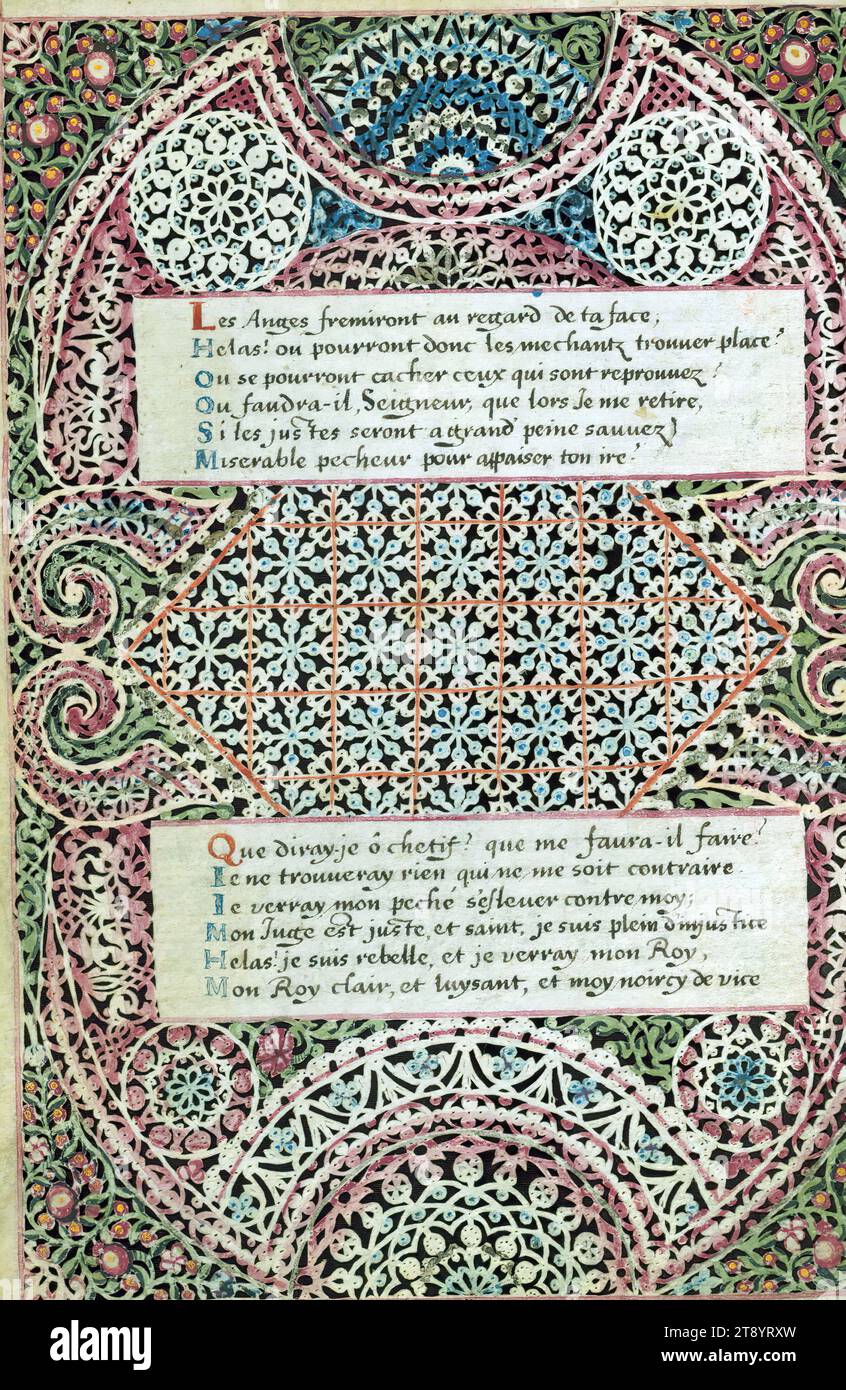 Les Anges fremiront au regard de ta face;
Helas! ou pourront donc les mechantz trouver place?
Ou se pourront cacher ceux qui sont reprouvez?
Ou faudra-il, Seigneur, que lors Je me retire,
Si les justes seront a grand peine sauvez)
Miserable pecheur pour appaiser ton ire?
Que diray-je ô chetif? que me faura-il faire?
Ie ne trouveray rien qui ne me soit contraire
Ie verray mon peché s'eslever contre moy;
Mon Iuge est juste, et saint, je suis plein d'injustice
Helas! je suis rebelle, et je verray mon Roy,
Mon Roy clair, et luysant, et moy noircy de vice
alamy
alamy
Image ID: 2T8YRXW
www.alamy.com